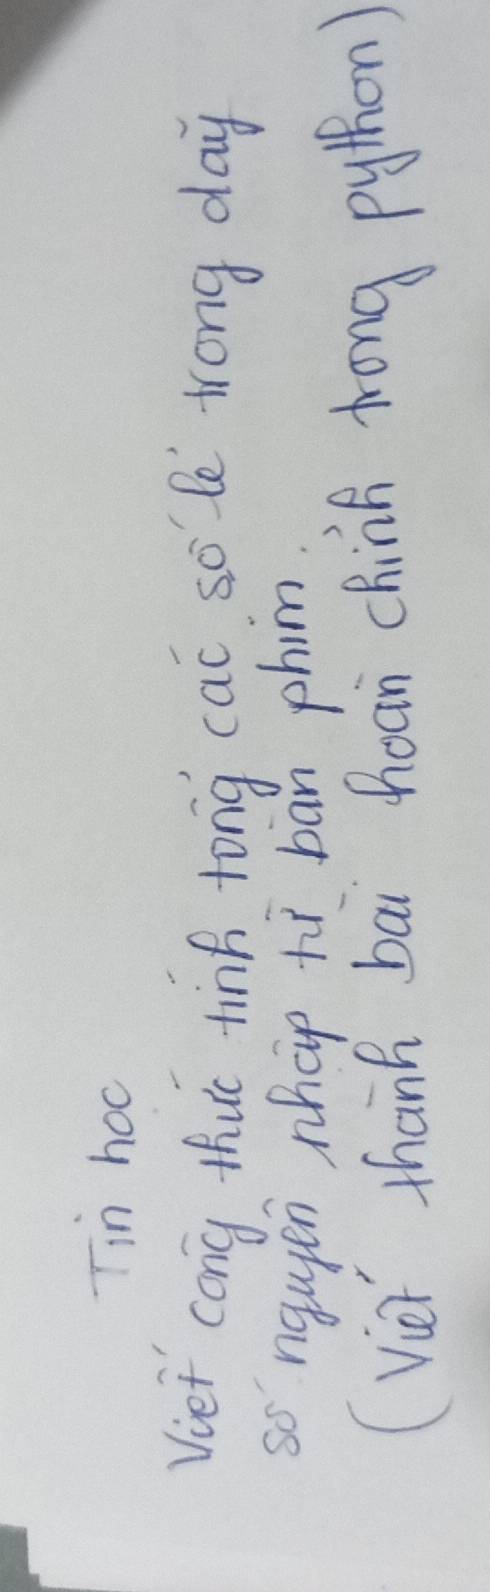 Tin hoc
Viết công thức tính tổng các số lẻ trong dãy
số nguyên nhập từ bàn phím.
(Viết thành bài hoàn chỉnh trong python)